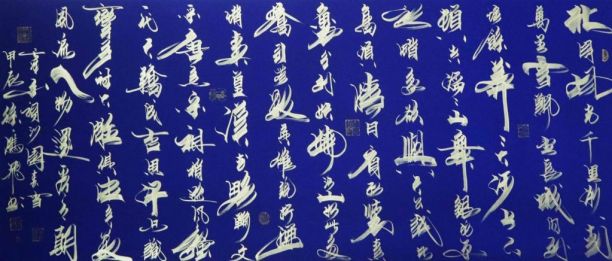 北国风光千里冰封
万里雪飘望长城内外
惟餘莽莽大河上下
顿失滔滔山舞银蛇原
驰蜡象欲与天公试比
高须晴日看红装素
裹分外妖娆江山如此多
娇引无数英雄竞折腰
惜秦皇汉武略输文
采唐宗宋祖稍逊风骚一
代天骄成吉思汗只识
弯弓射大雕俱往矣数
风流人物还看今朝
沁园春雪
甲辰